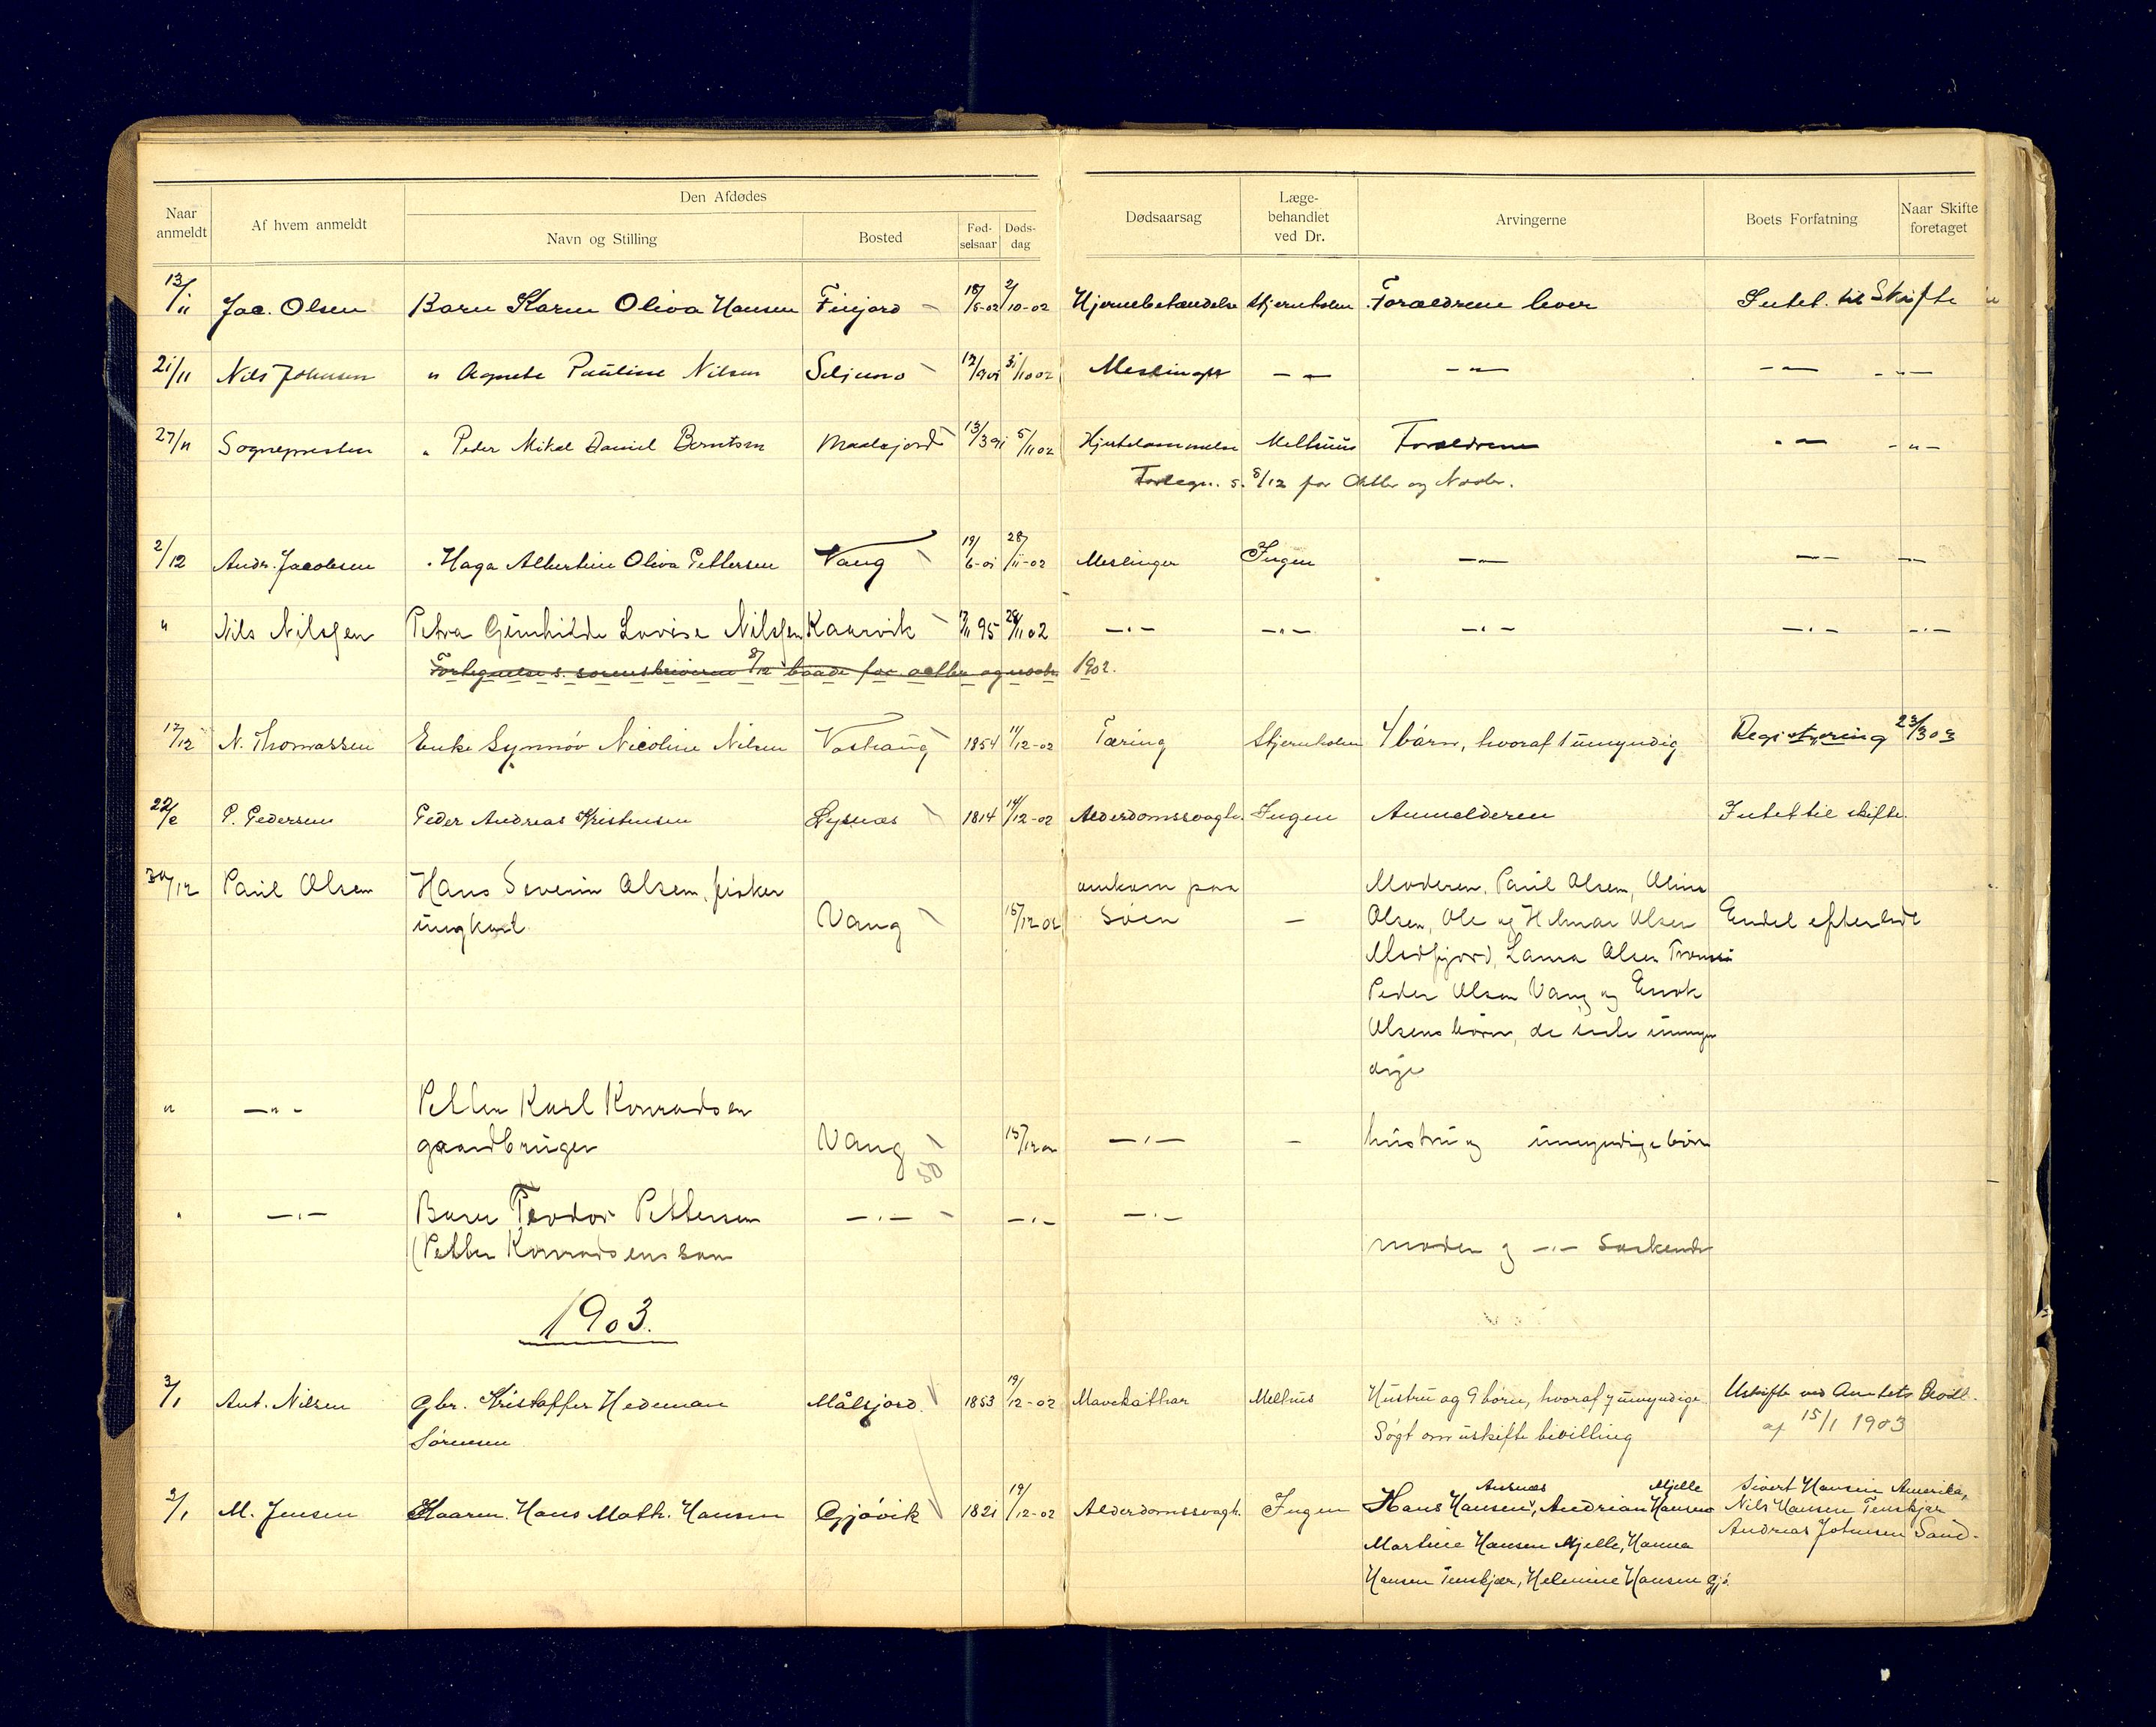 Den Afdødes
Naar anmeldt | Af hvem anmeldt | Navn og Stilling | Bosted | Fød-selsaar | Døds-dag | Dødsaarsag | Læge-behandlet ved Dr. | Arvingerne | Boets Forfatning | Naar Skifte foretaget
13/11 Jac. Olsen Barn Karen Oliva Hansen Finjord 2/10-02 Hjernebetændelse Stjernholm Forældrene lever Intet til Skifte
21/11 Nils Johnsen " Agnete Pauline Nilsen 31/10 02 Meslinger — " — — " — — " — — " —
27/11 Sognepresten " Peder Mikal Daniel Berntsen Maalsjord 13/3 91 5/11 02 Hjertelammelse Melhuus Forældrene — " — — " —
Fortegn. s. 8/12 for Oktbr og Novbr.
2/12 Andr. Jacobsen " Haga Albertine Oliva Pettersen Vang 19/6-01 28/11-02 Meslinger Ingen — " — — " — — " —
" Nils Nilssen Petra Gunhilde Lovise Nilssen Kaarvik 95 28/11 02 — " — — " — — " — — " — — " —
Fortegnelse s. sorenskriveren 8/12 baade for octbr og novbr. 1902.
17/12 N. Thomassen Enke Synnöv Nicoline Nilsen Vashaug 1854 11/12-02 Tæring Stjernholm 4 børn, hvoraf 1 umyndig Registrering 23/3 03
22/12 P. Pedersen Peder Andreas Kristensen Lysnæs 1814 14/12-02 Alderdomssvagh. Ingen Anmelderen Intet til skifte.
30/12 Paul Olsen Hans Severin Olsen, fisker omkom paa Moderen, Paul Olsen, Oline
ungkarl Vang 15/12 02 Søen — Olsen, Ole og Hilmar Olsen Endel efterladt
Medfjord, Laura Olsen Tromsø
Peder Olsen Vang og Enok
Olsens børn, de siste umyn
dige
" — " — Petter Karl Konradsen
gaardbruger Vang 15/12 02 — " — — hustru og umyndige børn
" — " — Barn Teodor Pettersen — " — — " — — " —
(Petter Konradsens søn moder og — " — Søskende
1903.
3/1 Ant. Nilsen Gbr. Kristoffer Hedeman Målsjord 1853 19/12-02 Mavekathar Melhus Hustru og 9 børn, hvoraf 7 umyndige. Uskifte ved Amtets Bevill.
Sørensen Søgt om uskifte bevilling af 15/1 1903
Aunæs Mjelle Sivert Hansen Amerika,
3/1 M. Jensen Kaarm. Hans Math. Hansen Gjövik 1821 19/12-02 Alderdomssvagh. Ingen Hans Hansen, Andrian Hansen Nils Hansen Tenskjær
Andreas Johnsen Sand-
Martine Hansen Mjelle, Hanna
Hansen Tenskjær, Helmine Hansen Gjö.